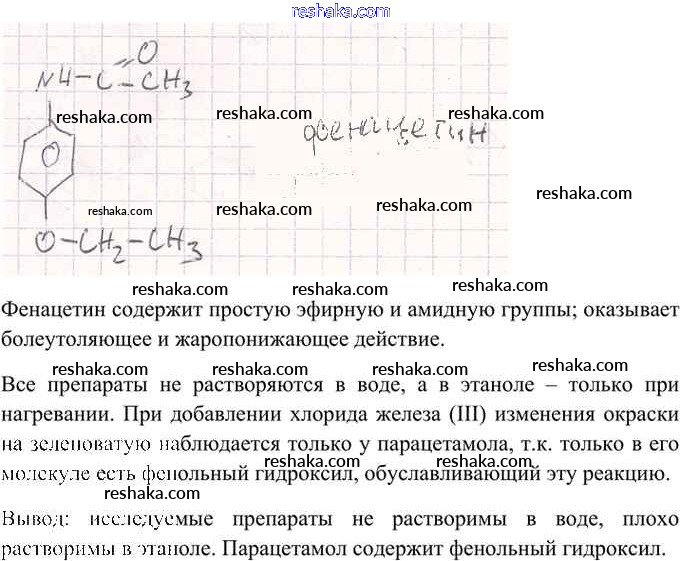 reshaka.com
O
NH–C–CH3
reshaka.com reshaka.com reshaka.com
фенацетин
O
reshaka.com reshaka.com reshaka.com
O–CH2–CH3
reshaka.com reshaka.com reshaka.com
Фенацетин содержит простую эфирную и амидную группы; оказывает
болеутоляющее и жаропонижающее действие.
reshaka.com reshaka.com reshaka.com reshaka.com
Все препараты не растворяются в воде, а в этаноле – только при
нагревании. При добавлении хлорида железа (III) изменения окраски
на зеленоватую наблюдается только у парацетамола, т.к. только в его
reshaka.com reshaka.com reshaka.com
молекуле есть фенольный гидроксил, обуславливающий эту реакцию.
reshaka.com reshaka.com reshaka.com
Вывод: исследуемые препараты не растворимы в воде, плохо
reshaka.com reshaka.com reshaka.com
растворимы в этаноле. Парацетамол содержит фенольный гидроксил.